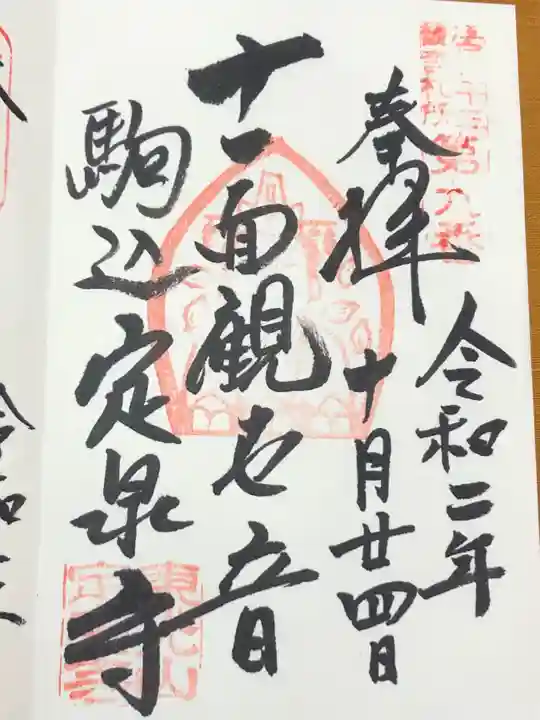 第九番
奉拝
令和二年
十月廿四日
十一面観世音
駒込定泉寺